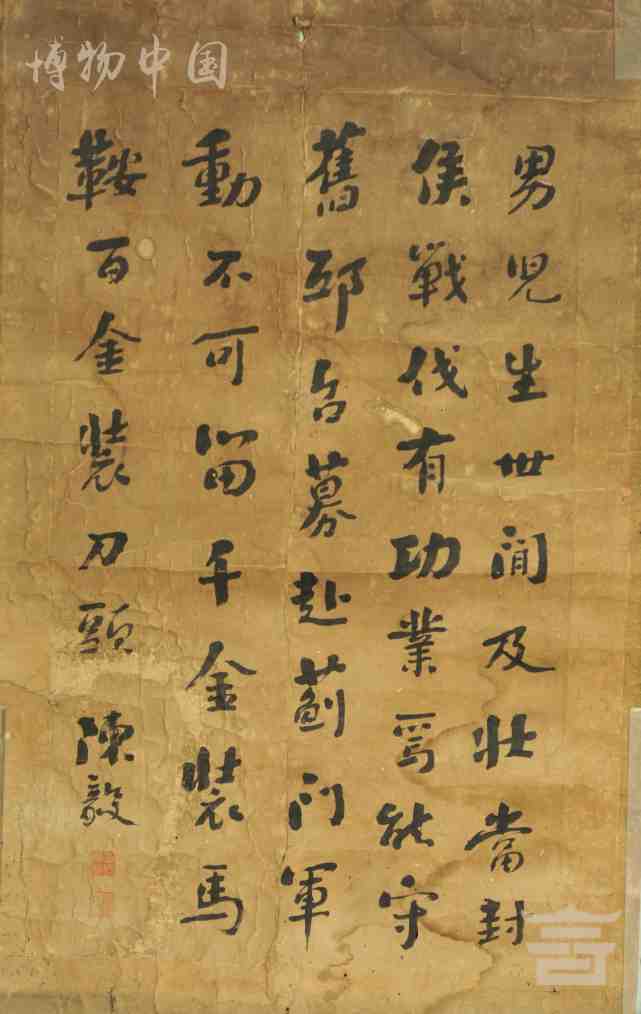 博物中国
男兒生世間及壯當封
侯戰伐有功業焉能守
舊邱召募赴薊門軍
動不可留千金裝馬
鞍百金裝刀頭
陳毅